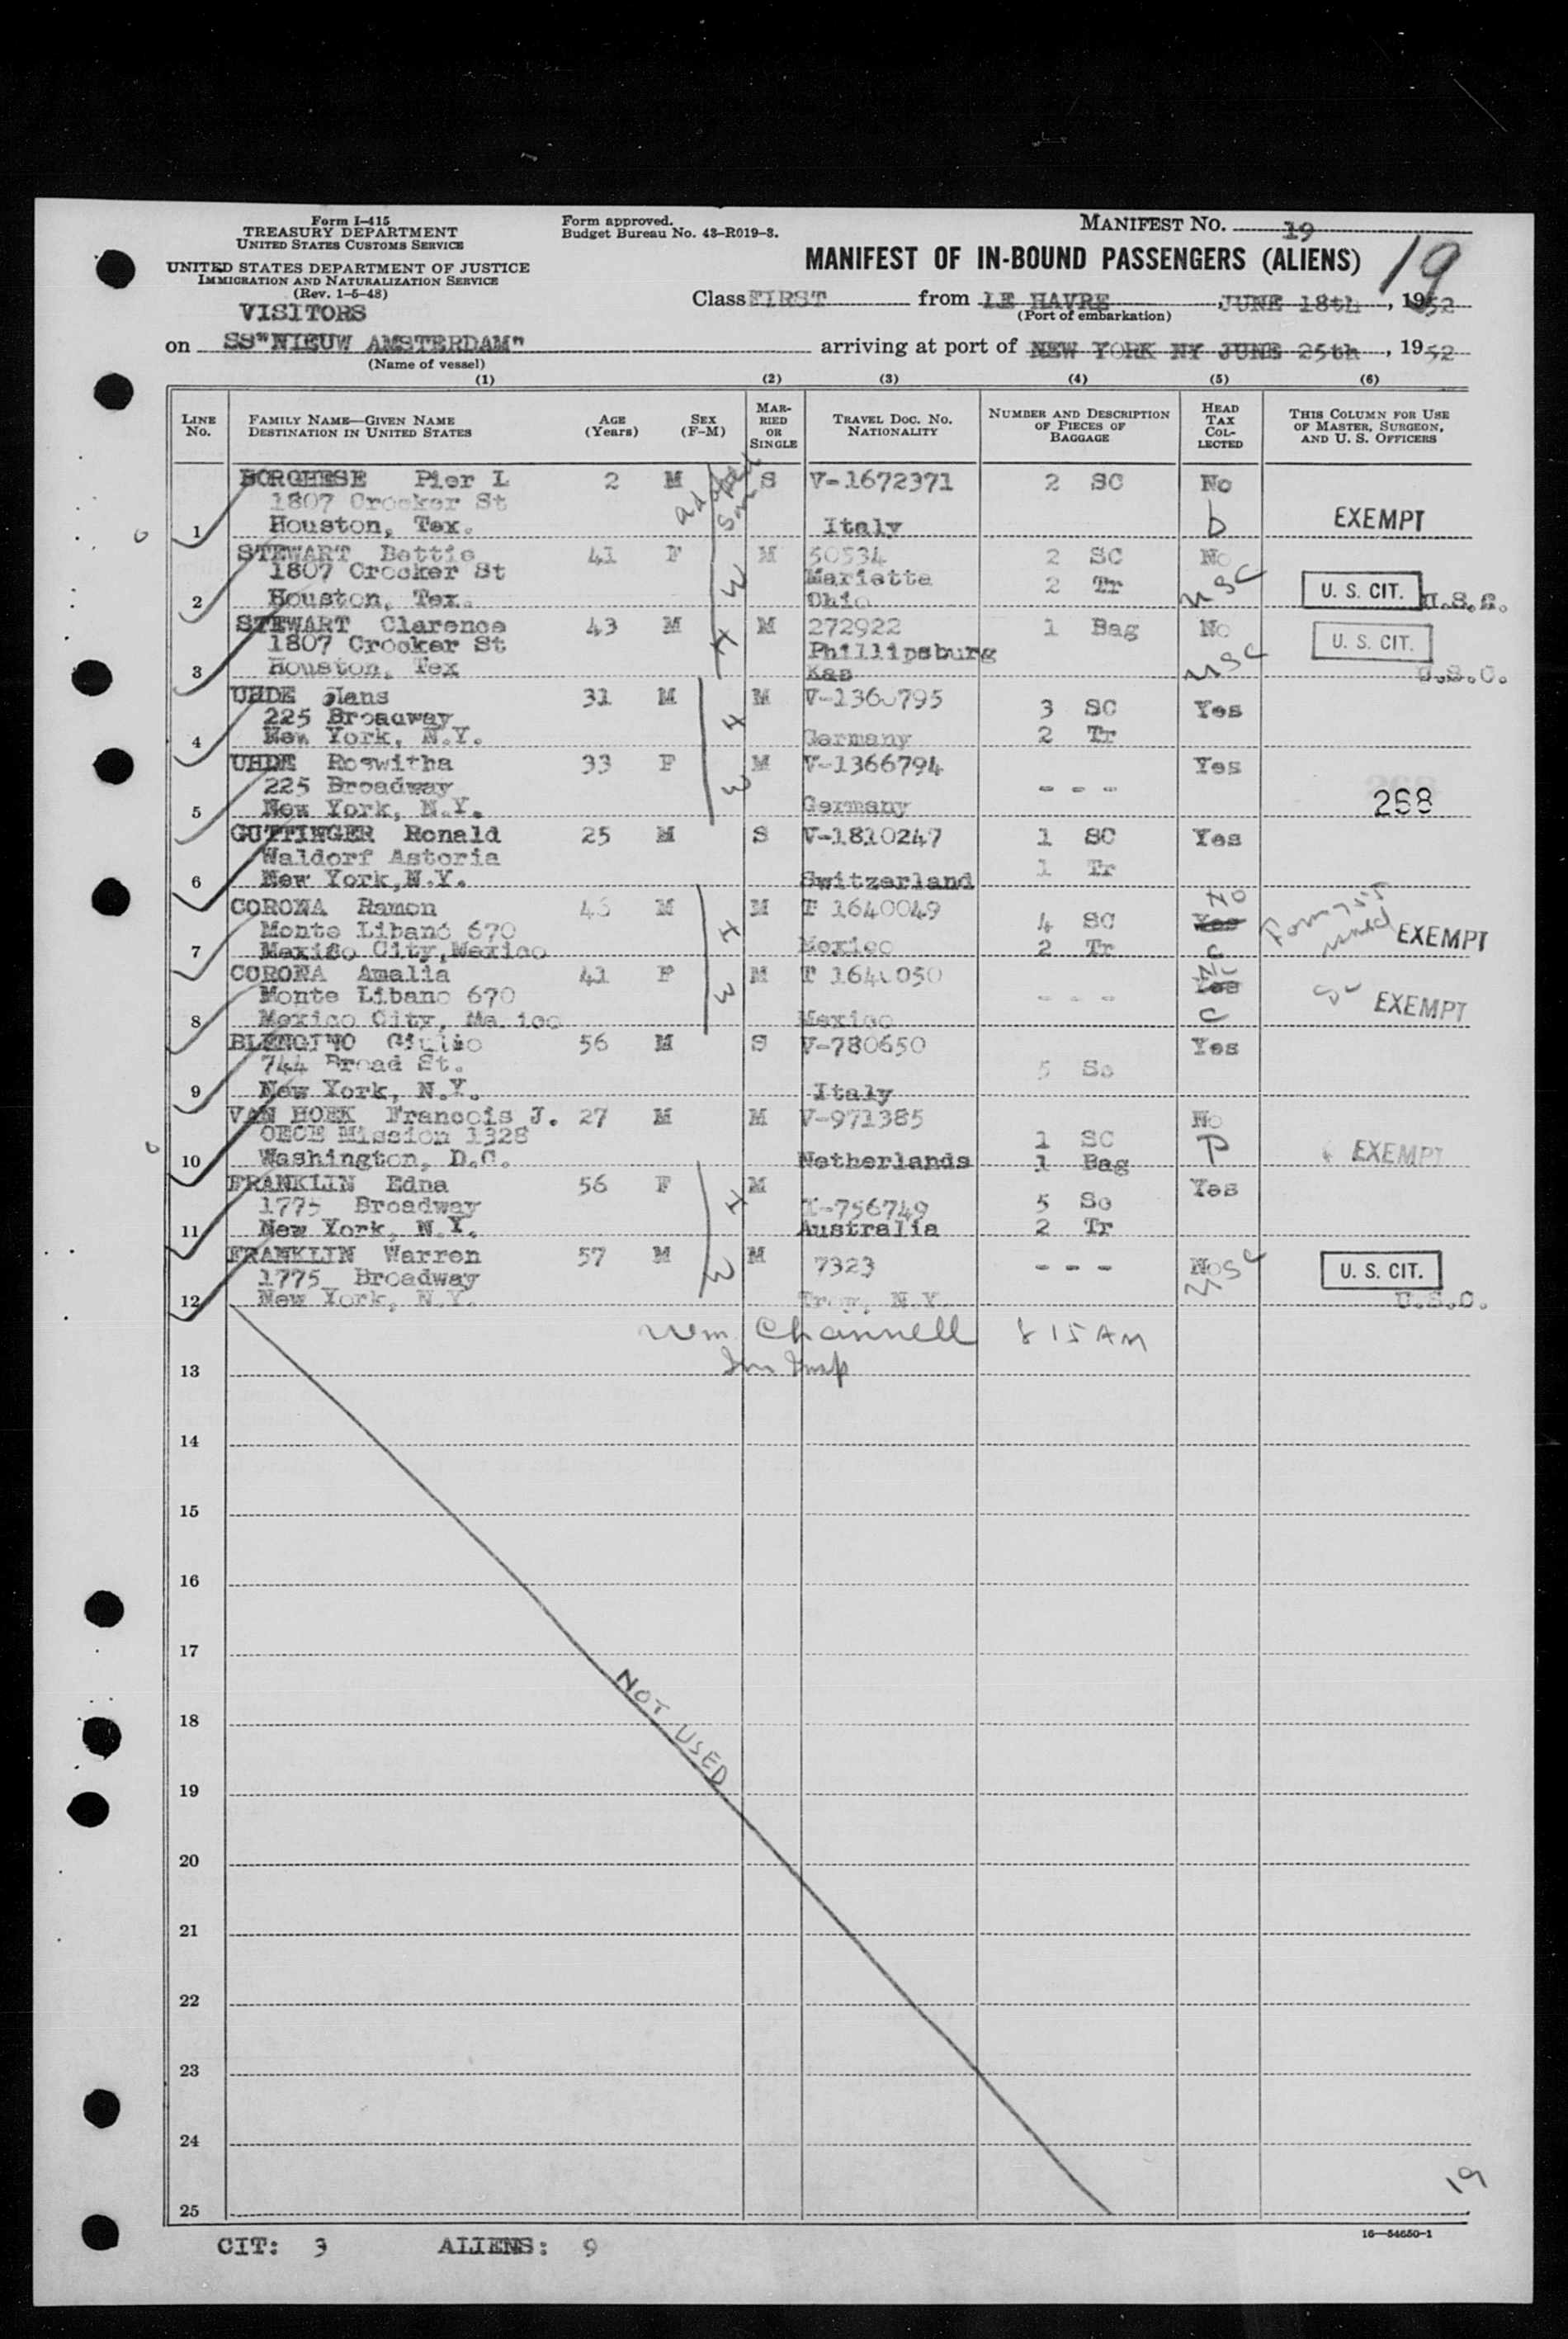 Form I-415
TREASURY DEPARTMENT
UNITED STATES CUSTOMS SERVICE
UNITED STATES DEPARTMENT OF JUSTICE
IMMIGRATION AND NATURALIZATION SERVICE
(Rev. 1-5-48)
VISITORS
Form approved.
Budget Bureau No. 43-R019-3.
MANIFEST No. 19
19
MANIFEST OF IN-BOUND PASSENGERS (ALIENS)
Class FIRST from LE HAVRE, JUNE 18th, 1952
(Port of embarkation)
on SS"NIEUW AMSTERDAM" arriving at port of NEW YORK NY JUNE 25th, 1952
(Name of vessel)
(1) (2) (3) (4) (5) (6)
LINE No.
FAMILY NAME—GIVEN NAME DESTINATION IN UNITED STATES
AGE (Years)
SEX (F-M)
MARRIED OR SINGLE
TRAVEL DOC. NO. NATIONALITY
NUMBER AND DESCRIPTION OF PIECES OF BAGGAGE
HEAD TAX COLLECTED
THIS COLUMN FOR USE OF MASTER, SURGEON, AND U. S. OFFICERS
BORGHESE Pier L 2 M adopted son S V-1672371 2 SC No
1807 Crocker St
1 Houston, Tex. Italy b EXEMPT
STEWART Bettie 41 F M 50534 2 SC No
1807 Crocker St W Marietta 2 Tr
2 Houston, Tex. Ohio USC U. S. CIT.
STEWART Clarence 43 M M 272922 1 Bag No
1807 Crocker St H Phillipsburg U. S. CIT.
3 Houston, Tex Kas USC U.S.C.
UHDE Hans 31 M M 3 SC Yes
225 Broadway H
4 New York, N.Y. Germany 2 Tr
UHDE Roswitha 33 F M V-1366794 Yes
225 Broadway W - - -
5 New York, N.Y. Germany 268
GUTTINGER Ronald 25 M S V-1810247 1 SC Yes
Waldorf Astoria 1 Tr
6 New York,N.Y. Switzerland
CORONA Ramon M M T 1640049 4 SC Yes No
Monte Libano 670 H
7 Mexico City,Mexico Mexico 2 Tr C EXEMPT
CORONA Amalia 41 F M T 1640050 Yes No
Monte Libano 670 W - - -
8 Mexico City, Mexico C EXEMPT
BLENGINO Giulio 56 M S V-780650 Yes
744 Broad St. 5 Sc
9 New York, N.Y. Italy
VAN HOEK Francois J. 27 M M V-971385 No
OECE Mission 1328 1 SC
10 Washington, D.C. Netherlands 1 Bag P EXEMPT
FRANKLIN Edna 56 F M Yes
1775 Broadway H T-756749 5 Sc
11 New York, N.Y. Australia 2 Tr
FRANKLIN Warren 57 M M 7323 - - - No USC
1775 Broadway W U. S. CIT.
12 New York, N.Y. Troy, N.Y. U.S.C.
Wm Channell 8 15 AM
13 Im Insp
14
15
16
17
NOT USED
18
19
20
21
22
23
24
19
25
CIT: 3 ALIENS: 9
16—54650-1